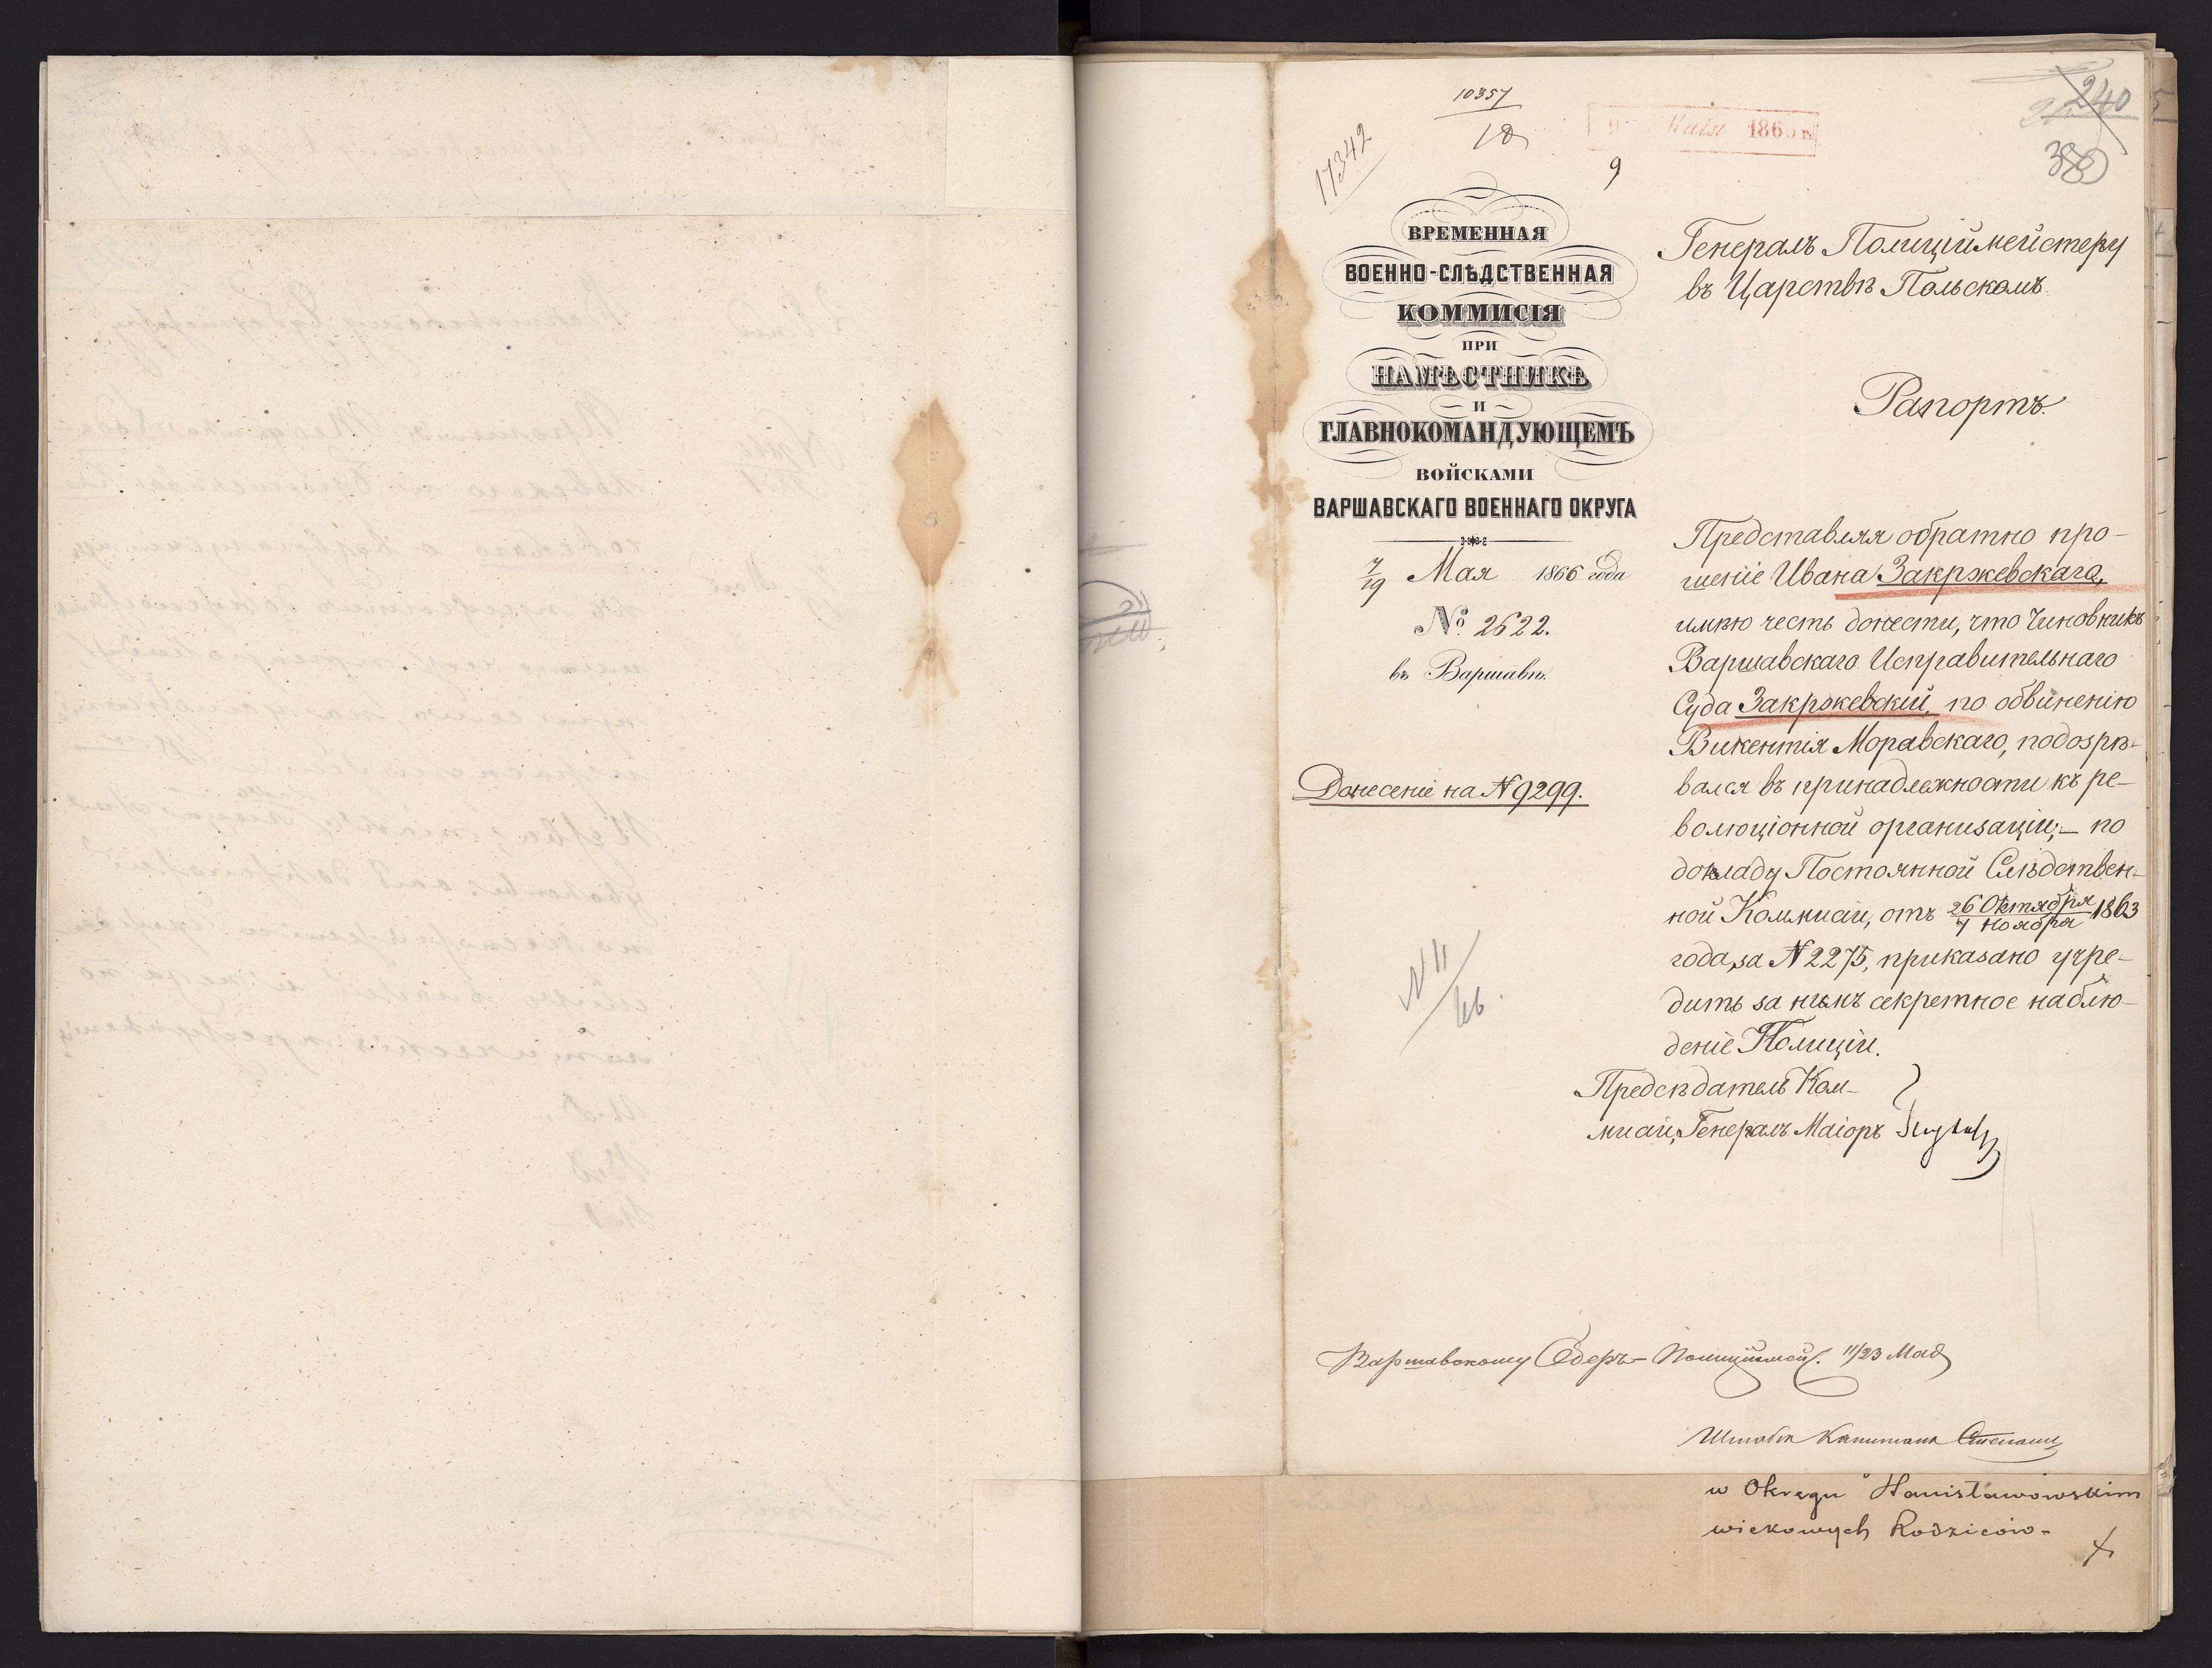 10357
18
17342
Мая 1866 г.
9
240
380
ВРЕМЕННАЯ
ВОЕННО-СЛѢДСТВЕННАЯ
КОММИСІЯ
ПРИ
НАМѢСТНИКѢ
И
ГЛАВНОКОМАНДУЮЩЕМЪ
ВОЙСКАМИ
ВАРШАВСКАГО ВОЕННАГО ОКРУГА
7/19 Мая 1866 года
№ 2622.
въ Варшавѣ.
Донесеніе на № 9299.
N 11
Генералъ Полиціймейстеру
въ Царствѣ Польскомъ.
Рапортъ.
Представляя обратно про-
шеніе Ивана Закржевскаго,
имѣю честь донести, что Чиновникъ
Варшавскаго Исправительнаго
Суда Закржевскій, по обвиненію
Викентія Моравскаго, подозрѣ-
вался въ принадлежности къ ре-
волюціонной организаціи; – по
докладу Постоянной Слѣдствен-
ной Коммисіи, отъ 26 Октября/7 Ноября 1863
года, за № 2275, приказано учре-
дить за нимъ секретное наблю-
деніе Полиціи.
Предсѣдатель Ком-
мисіи, Генералъ Маіоръ
Варшавскому Оберъ-Полиціймей. 11/23 Мая
Штабсъ Капитанъ
w Okręgu Stanisławowskim
wiekowych Rodziców-